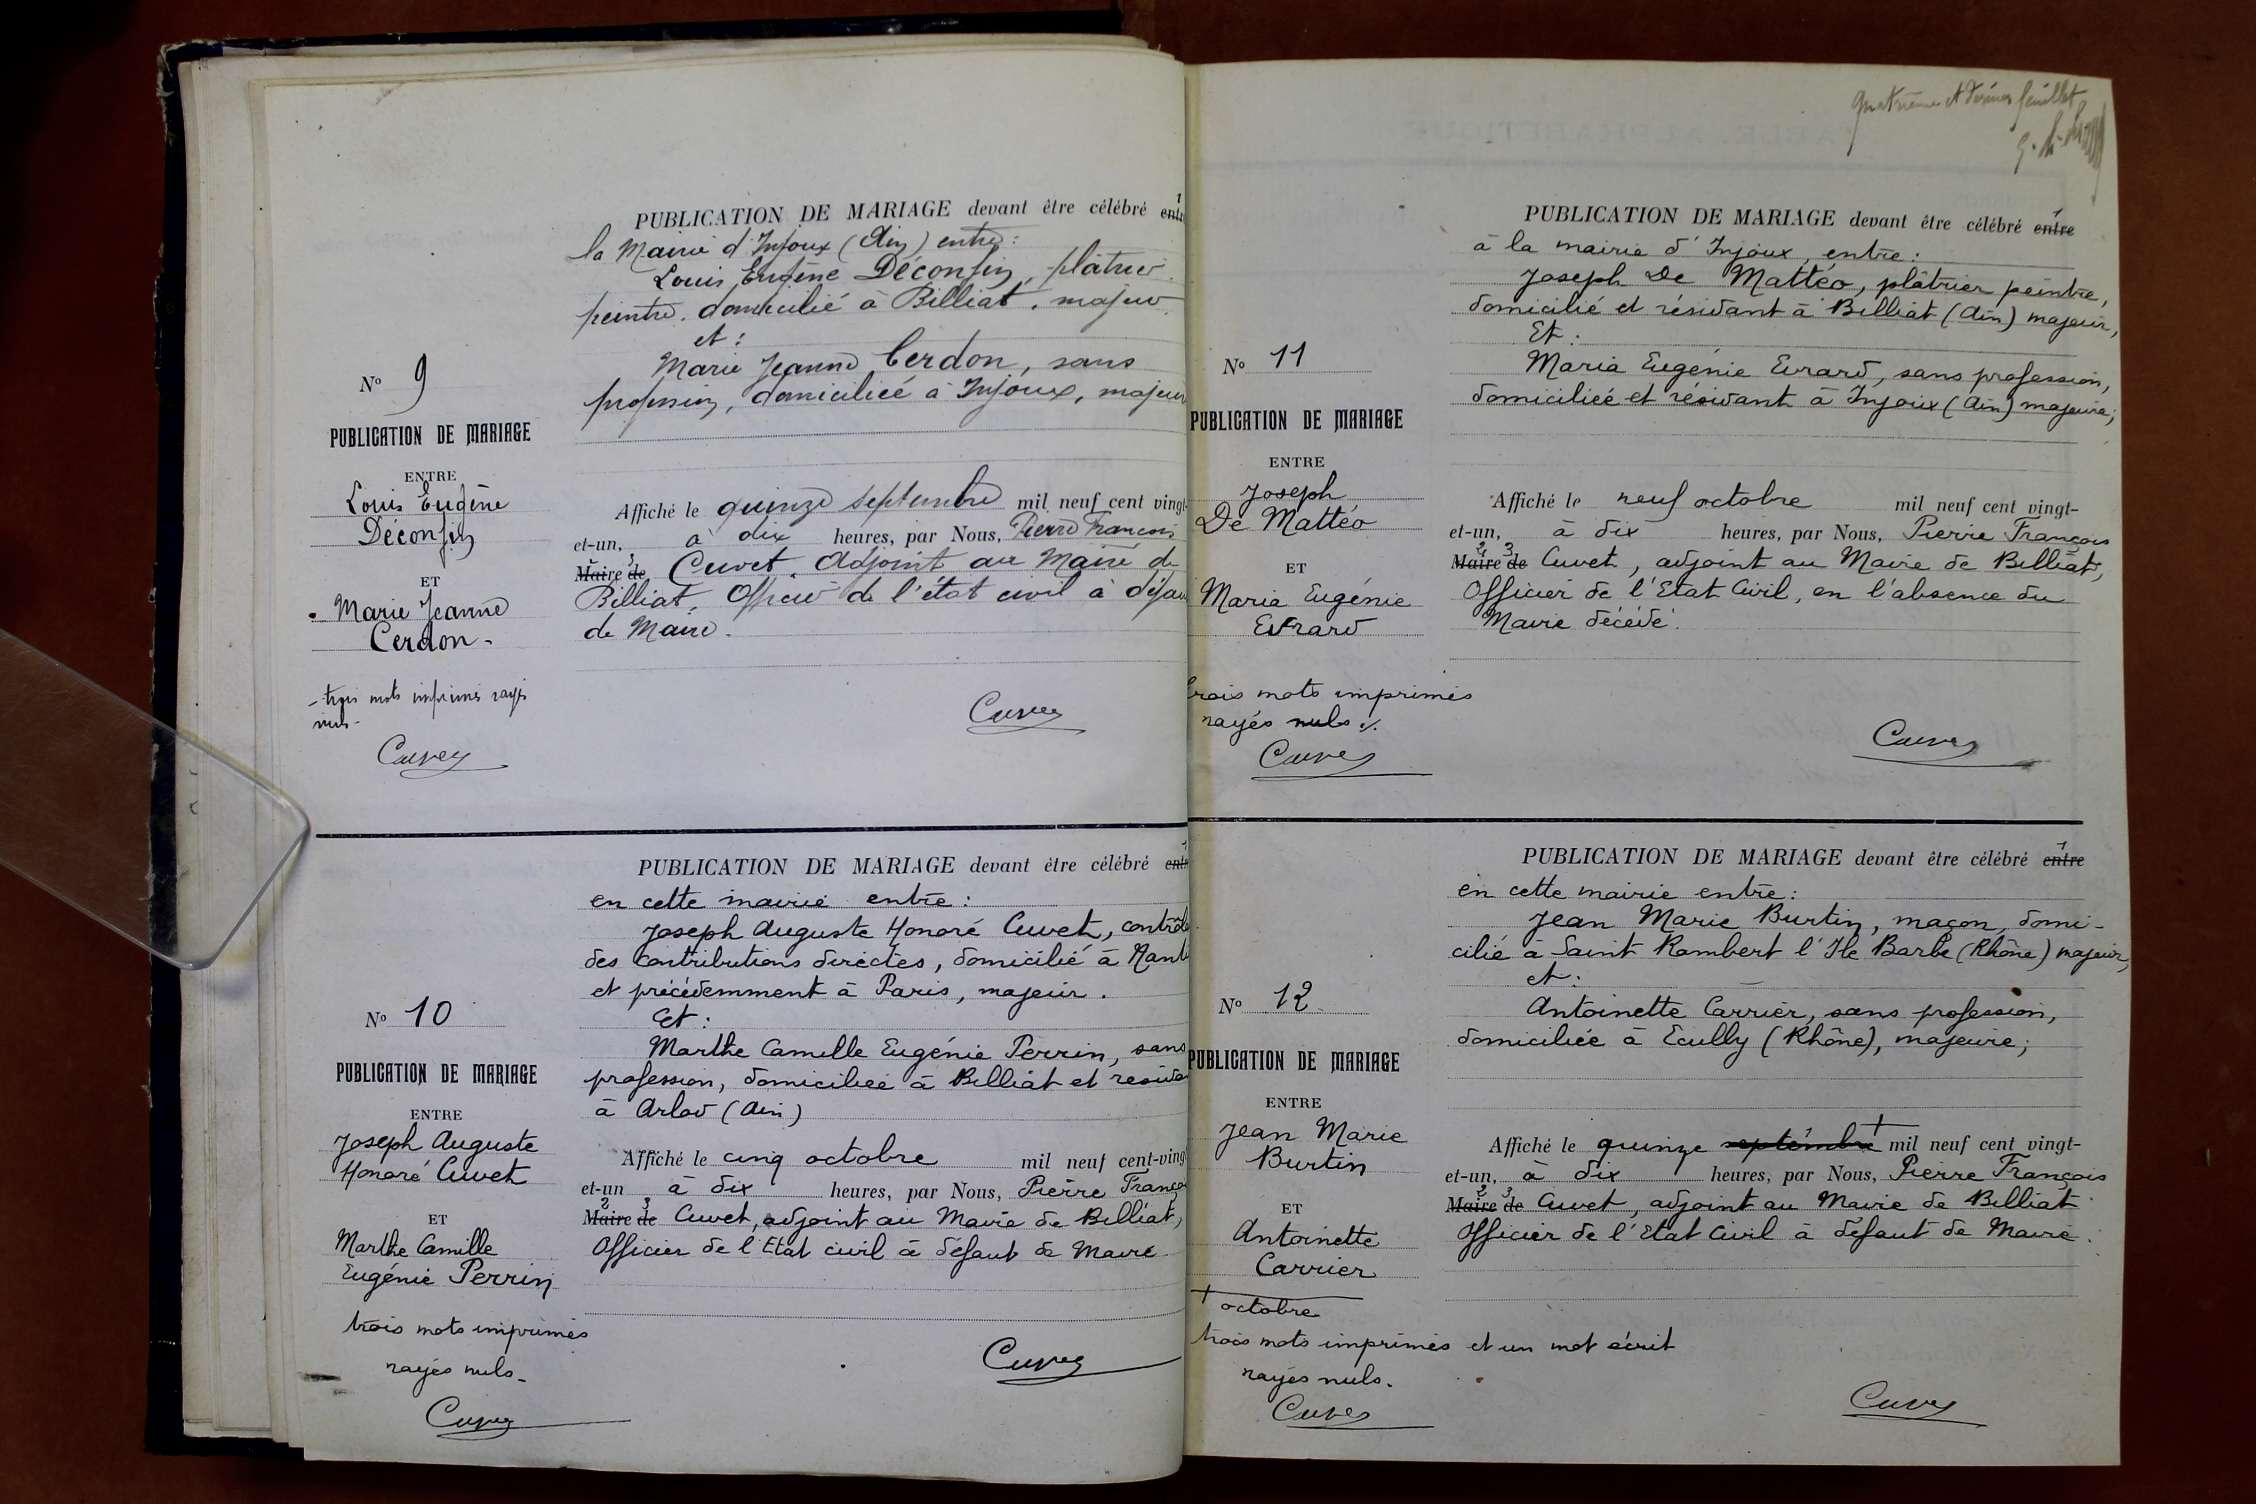 PUBLICATION DE MARIAGE devant être célébré
la Mairie d'Injoux (Ain) entre :
Louis Eugène Déconfin, plâtrier
peintre, domicilié à Billiat, majeur
et :
Marie Jeanne Cerdon, sans
profession, domiciliée à Injoux, majeur
No 9
PUBLICATION DE MARIAGE
ENTRE
Louis Eugène
Déconfin
ET
Marie Jeanne
Cerdon -
- trois mots imprimés rayés
nuls -
Cuvet
Affiché le quinze septembre mil neuf cent vingt-
et-un, à dix heures, par Nous, Pierre François
Maire de Cuvet, Adjoint au Maire de
Billiat, Officier de l'état civil à défau
de Maire.
Cuvet
PUBLICATION DE MARIAGE devant être célébré
en cette mairie entre :
Joseph Auguste Honoré Cuvet, contrôl
des Contributions directes, domicilié à Nant
et précédemment à Paris, majeur.
Et :
Marthe Camille Eugénie Perrin, sans
profession, domiciliée à Billiat et résida
à Arlod (Ain)
No 10
PUBLICATION DE MARIAGE
ENTRE
Joseph Auguste
Honoré Cuvet
ET
Marthe Camille
Eugénie Perrin
trois mots imprimés
rayés nuls -
Cuvet
Affiché le cinq octobre mil neuf cent-ving
et-un à dix heures, par Nous, Pierre Franço
Maire de Cuvet, adjoint au Maire de Billiat,
Officier de l'Etat civil à défaut de Maire
Cuvet
Quatrième et dernier feuillet
PUBLICATION DE MARIAGE devant être célébré entre
à la mairie d'Injoux, entre :
Joseph De Mattéo, plâtrier peintre,
domicilié et résidant à Billiat (Ain) majeur,
Et :
Maria Eugénie Evrard, sans profession,
domiciliée et résidant à Injoux (Ain) majeure ;
No 11
PUBLICATION DE MARIAGE
ENTRE
Joseph
De Mattéo
ET
Maria Eugénie
Evrard
trois mots imprimés
rayés nuls ./.
Cuvet
Affiché le neuf octobre mil neuf cent vingt-
et-un, à dix heures, par Nous, Pierre François
Maire de Cuvet, adjoint au Maire de Billiat,
Officier de l'Etat Civil, en l'absence du
Maire décédé.
Cuvet
PUBLICATION DE MARIAGE devant être célébré entre
en cette mairie entre :
Jean Marie Burtin, maçon, domi-
cilié à Saint Rambert l'Ile Barbe (Rhône) majeur,
et :
Antoinette Carrier, sans profession,
domiciliée à Ecully (Rhône), majeure ;
No 12
PUBLICATION DE MARIAGE
ENTRE
Jean Marie
Burtin
ET
Antoinette
Carrier
+ octobre
trois mots imprimés et un mot écrit
rayés nuls.
Cuvet
Affiché le quinze septembre + mil neuf cent vingt-
et-un, à dix heures, par Nous, Pierre François
Maire de Cuvet, adjoint au Maire de Billiat
Officier de l'Etat Civil à défaut de Maire.
Cuvet